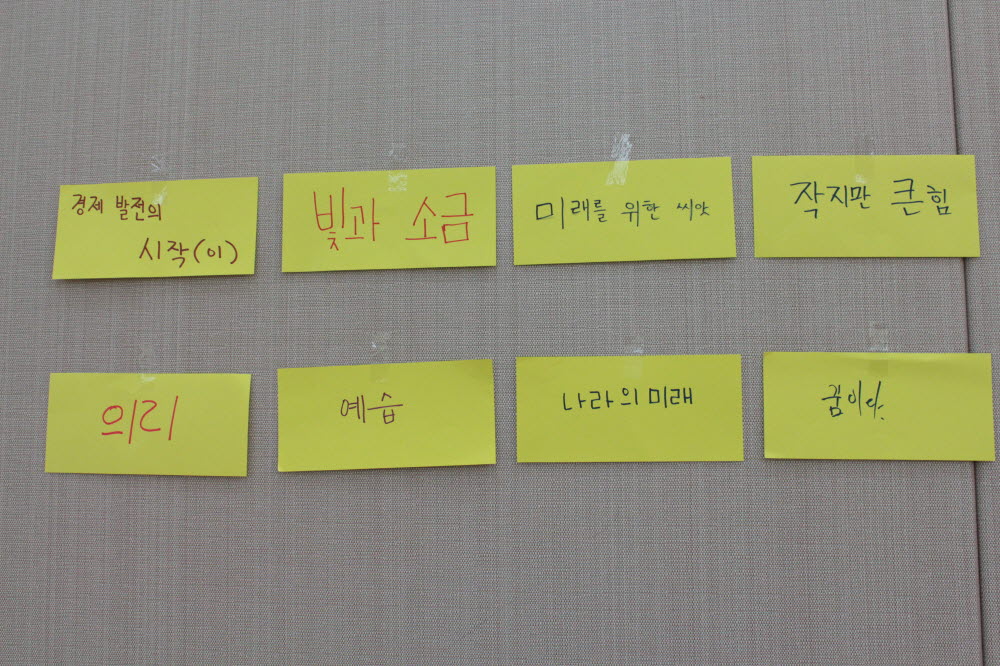 경제 발전의
시작(이)
빛과 소금
미래를 위한 씨앗
작지만 큰 힘
의리
예습
나라의 미래
꿈이다.